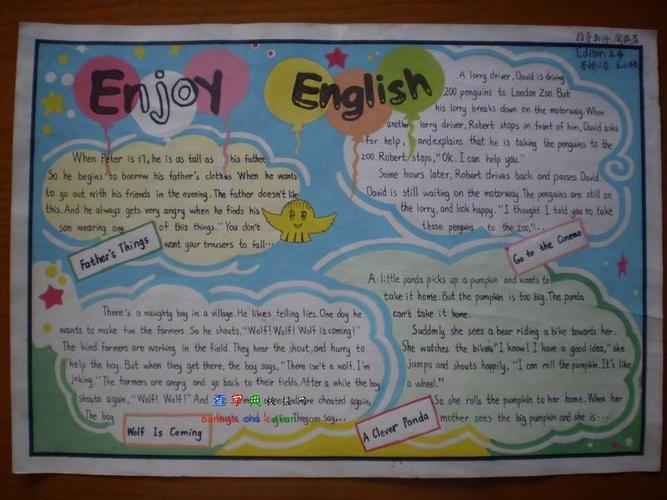 Enjoy English
When Peter is 17, he is as tall as his father.
So he begins to borrow his father's clothes When he wants
to go out with his friends in the evening. The father doesn't like
this. And he always gets very angry when he finds his
son wearing one of this things. "You don't
want your trousers to fall...
Father's Things
A lorry driver, David is driving
200 penguins to London Zoo. But
his lorry breaks down on the motorway. When
another lorry driver, Robert stops in front of him, David asks
for help, and explains that he is taking the penguins to the
zoo. Robert stops, "Ok. I can help you."
Some hours later, Robert drives back and passes David.
David is still waiting on the motorway. The penguins are still on
the lorry, and look happy. "I thought I told you to take
those penguins to the zoo,"...
Go to the Cinema
There's a naughty boy in a village. He likes telling lies. One day he
wants to make fun the farmers. So he shouts, "Wolf! Wolf! Wolf is coming!"
The kind farmers are working in the field. They hear the shout, and hurry to
help the boy. But when they get there, the boy says, "There isn't a wolf. I'm
joking." The farmers are angry and go back to their fields. After a while the boy
shouts again, "Wolf! Wolf!" And
The boy
say...
Wolf Is Coming
A little panda picks up a pumpkin and wants to
take it home. But the pumpkin is too big. The panda
can't take it home.
Suddenly she sees a bear riding a bike towards her.
She watches the bike. "I know! I have a good idea," she
jumps and shouts happily, "I can roll the pumpkin. It's like
a wheel."
So she rolls the pumpkin to her home. When her
mother sees the big pumpkin and she is...
A Clever Panda